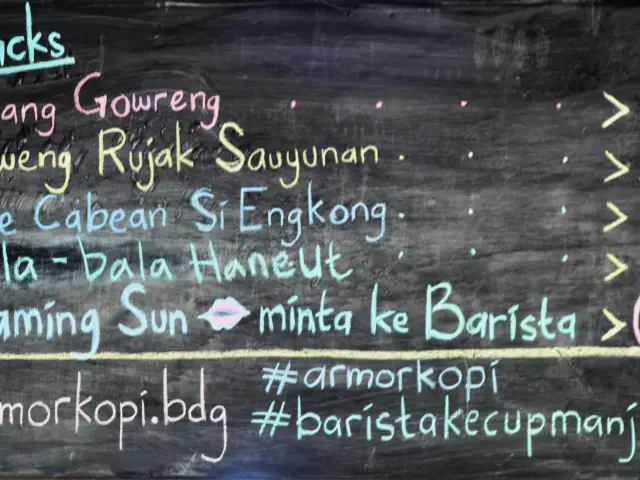 acks
ang Gowreng . . . . >
weng Rujak Sauyunan . . . >
e Cabean Si Engkong . . . >
la - bala Haneut . . . >
aming Sun 💋 minta ke Barista >
morkopi.bdg
#armorkopi
#baristakecupmanj